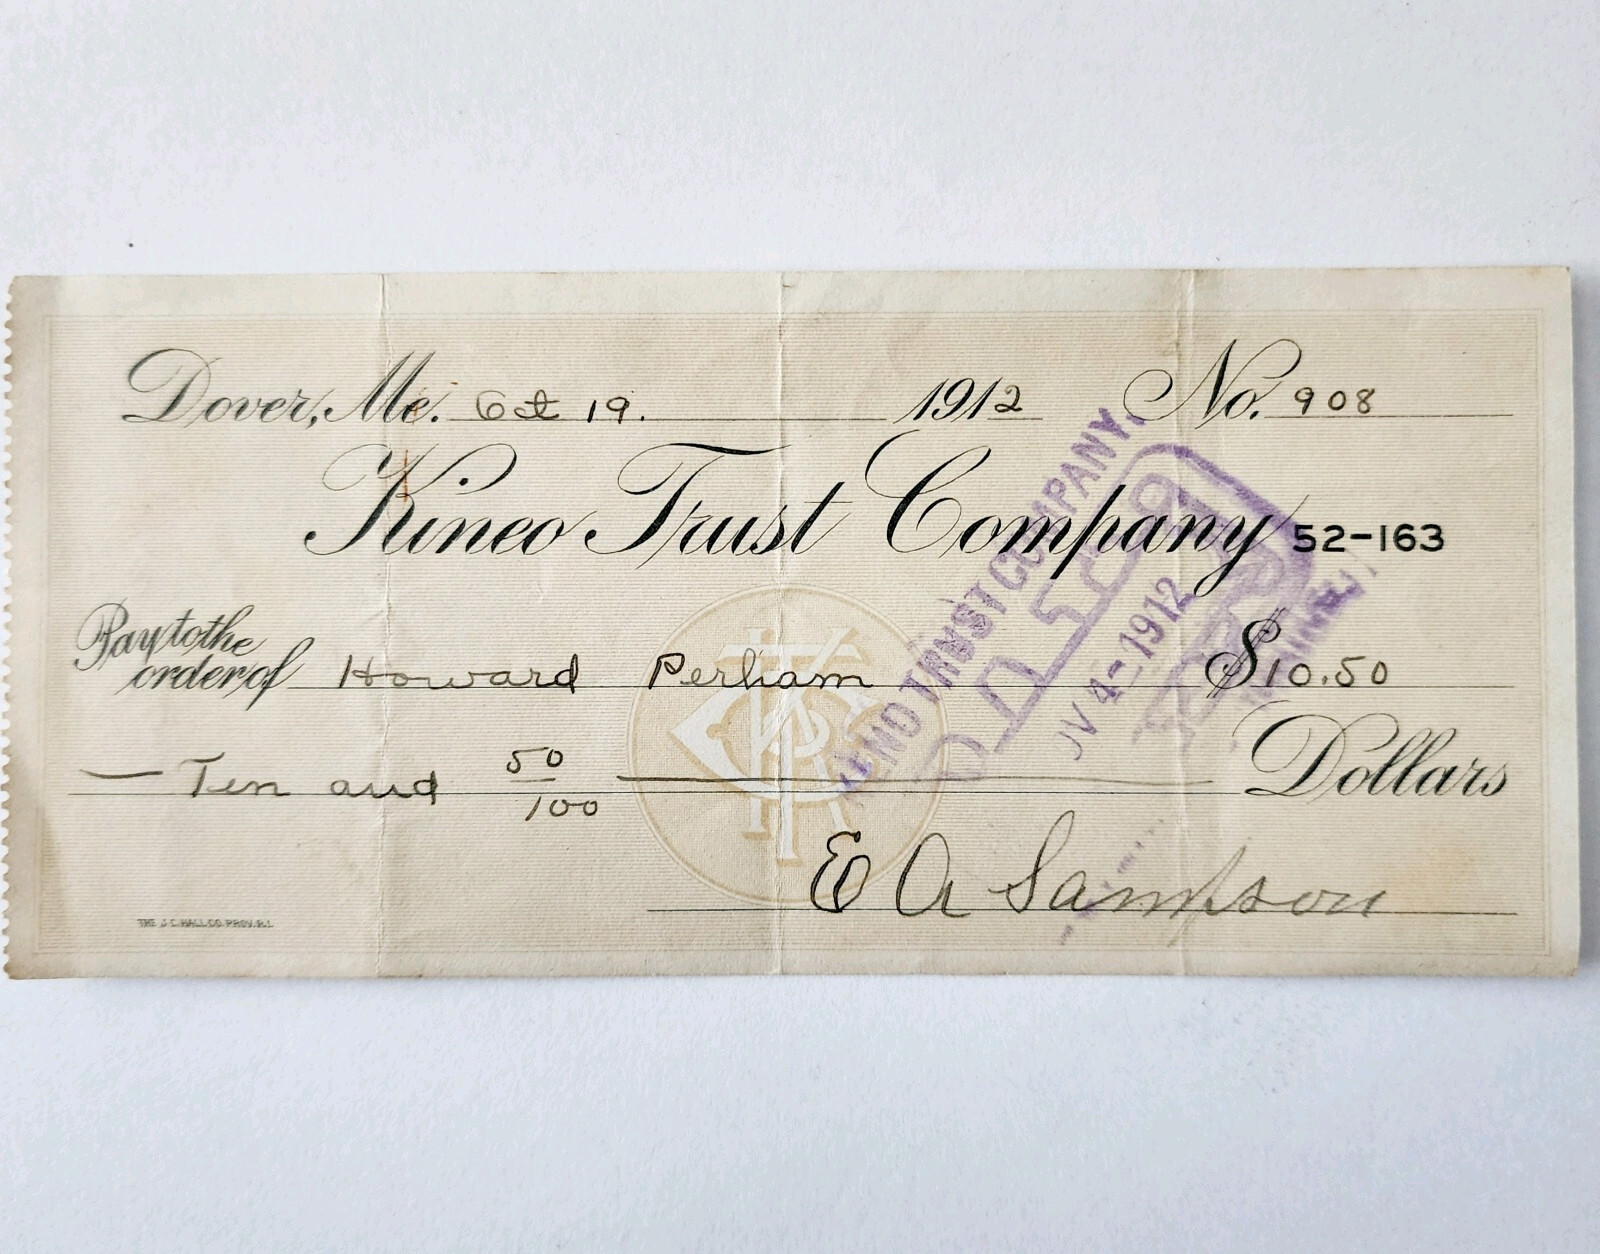 Dover, Me. Oct 19. 1912 No. 908
Kineo Trust Company 52-163
Pay to the
order of Howard Perham $10.50
— Ten and 50/100 Dollars
E A Sampson
THE J.C. HALL CO. PROV. R.I.
TRUST COMPANY,
PAID
4-1912